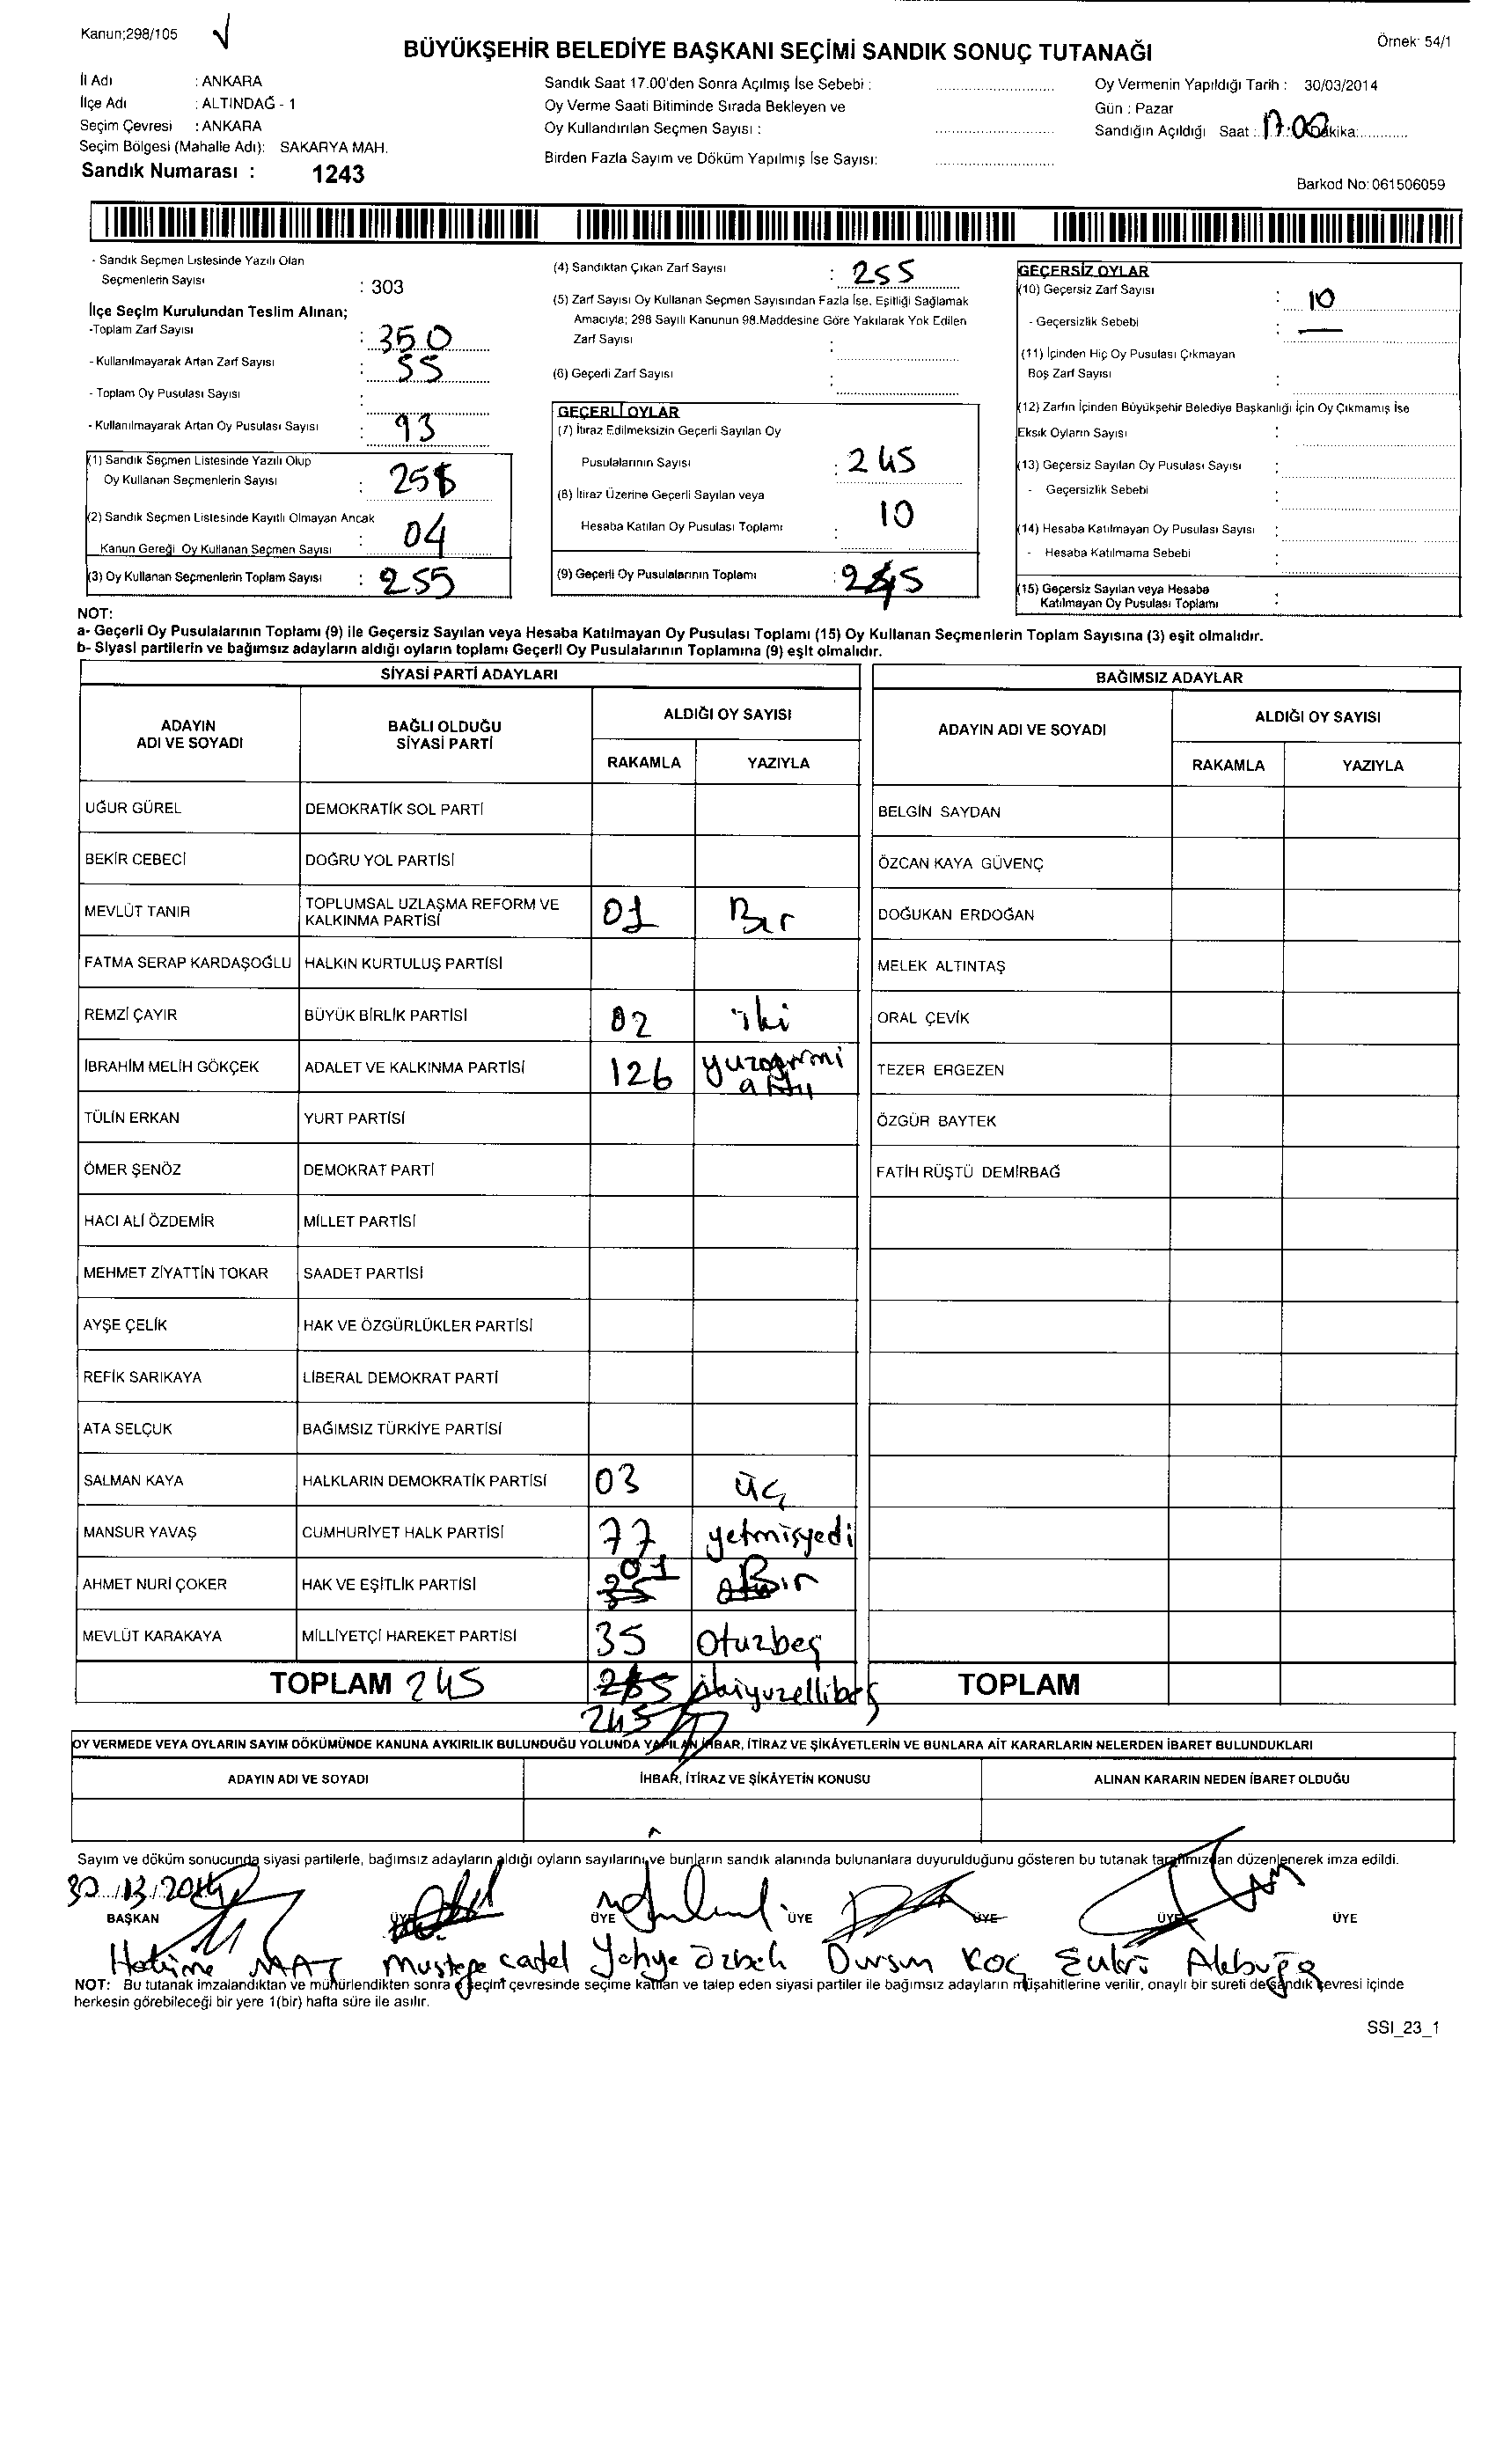 Kanun;298/105
BÜYÜKŞEHİR BELEDİYE BAŞKANI SEÇİMİ SANDIK SONUÇ TUTANAĞI
Örnek: 54/1
İl Adı : ANKARA
İlçe Adı : ALTINDAĞ - 1
Seçim Çevresi : ANKARA
Seçim Bölgesi (Mahalle Adı): SAKARYA MAH.
Sandık Numarası : 1243
Sandık Saat 17.00'den Sonra Açılmış İse Sebebi :
Oy Verme Saati Bitiminde Sırada Bekleyen ve
Oy Kullandırılan Seçmen Sayısı :
Birden Fazla Sayım ve Döküm Yapılmış İse Sayısı:
Oy Vermenin Yapıldığı Tarih : 30/03/2014
Gün : Pazar
Sandığın Açıldığı Saat : 17:00 Dakika:
Barkod No: 061506059
- Sandık Seçmen Listesinde Yazılı Olan
Seçmenlerin Sayısı : 303
İlçe Seçim Kurulundan Teslim Alınan;
-Toplam Zarf Sayısı : 350
- Kullanılmayarak Artan Zarf Sayısı : 55
- Toplam Oy Pusulası Sayısı :
- Kullanılmayarak Artan Oy Pusulası Sayısı : 93
(1) Sandık Seçmen Listesinde Yazılı Olup
Oy Kullanan Seçmenlerin Sayısı :
(2) Sandık Seçmen Listesinde Kayıtlı Olmayan Ancak
Kanun Gereği Oy Kullanan Seçmen Sayısı : 04
(3) Oy Kullanan Seçmenlerin Toplam Sayısı : 255
(4) Sandıktan Çıkan Zarf Sayısı : 255
(5) Zarf Sayısı Oy Kullanan Seçmen Sayısından Fazla İse, Eşitliği Sağlamak
Amacıyla; 298 Sayılı Kanunun 98.Maddesine Göre Yakılarak Yok Edilen
Zarf Sayısı :
(6) Geçerli Zarf Sayısı :
GEÇERLİ OYLAR
(7) İtiraz Edilmeksizin Geçerli Sayılan Oy
Pusulalarının Sayısı : 245
(8) İtiraz Üzerine Geçerli Sayılan veya
Hesaba Katılan Oy Pusulası Toplamı : 10
(9) Geçerli Oy Pusulalarının Toplamı : 245
GEÇERSİZ OYLAR
(10) Geçersiz Zarf Sayısı : 10
- Geçersizlik Sebebi : —
(11) İçinden Hiç Oy Pusulası Çıkmayan
Boş Zarf Sayısı :
(12) Zarfın İçinden Büyükşehir Belediye Başkanlığı İçin Oy Çıkmamış İse
Eksik Oyların Sayısı :
(13) Geçersiz Sayılan Oy Pusulası Sayısı :
- Geçersizlik Sebebi :
(14) Hesaba Katılmayan Oy Pusulası Sayısı :
- Hesaba Katılmama Sebebi :
(15) Geçersiz Sayılan veya Hesaba
Katılmayan Oy Pusulası Toplamı :
NOT:
a- Geçerli Oy Pusulalarının Toplamı (9) ile Geçersiz Sayılan veya Hesaba Katılmayan Oy Pusulası Toplamı (15) Oy Kullanan Seçmenlerin Toplam Sayısına (3) eşit olmalıdır.
b- Siyasi partilerin ve bağımsız adayların aldığı oyların toplamı Geçerli Oy Pusulalarının Toplamına (9) eşit olmalıdır.
SİYASİ PARTİ ADAYLARI
ADAYIN ADI VE SOYADI
BAĞLI OLDUĞU SİYASİ PARTİ
ALDIĞI OY SAYISI
RAKAMLA YAZIYLA
UĞUR GÜREL DEMOKRATİK SOL PARTİ
BEKİR CEBECİ DOĞRU YOL PARTİSİ
MEVLÜT TANIR TOPLUMSAL UZLAŞMA REFORM VE KALKINMA PARTİSİ 01 Bır
FATMA SERAP KARDAŞOĞLU HALKIN KURTULUŞ PARTİSİ
REMZİ ÇAYIR BÜYÜK BİRLİK PARTİSİ 02 iki
İBRAHİM MELİH GÖKÇEK ADALET VE KALKINMA PARTİSİ 126
TÜLİN ERKAN YURT PARTİSİ
ÖMER ŞENÖZ DEMOKRAT PARTİ
HACI ALİ ÖZDEMİR MİLLET PARTİSİ
MEHMET ZİYATTİN TOKAR SAADET PARTİSİ
AYŞE ÇELİK HAK VE ÖZGÜRLÜKLER PARTİSİ
REFİK SARIKAYA LİBERAL DEMOKRAT PARTİ
ATA SELÇUK BAĞIMSIZ TÜRKİYE PARTİSİ
SALMAN KAYA HALKLARIN DEMOKRATİK PARTİSİ 03 üç
MANSUR YAVAŞ CUMHURİYET HALK PARTİSİ 77 yetmişyedi
AHMET NURİ ÇOKER HAK VE EŞİTLİK PARTİSİ 01 Bir
MEVLÜT KARAKAYA MİLLİYETÇİ HAREKET PARTİSİ 35 Otuzbeş
TOPLAM 245 ikiyuzellibeş
245
BAĞIMSIZ ADAYLAR
ADAYIN ADI VE SOYADI
ALDIĞI OY SAYISI
RAKAMLA YAZIYLA
BELGİN SAYDAN
ÖZCAN KAYA GÜVENÇ
DOĞUKAN ERDOĞAN
MELEK ALTINTAŞ
ORAL ÇEVİK
TEZER ERGEZEN
ÖZGÜR BAYTEK
FATİH RÜŞTÜ DEMİRBAĞ
TOPLAM
OY VERMEDE VEYA OYLARIN SAYIM DÖKÜMÜNDE KANUNA AYKIRILIK BULUNDUĞU YOLUNDA YAPILAN İHBAR, İTİRAZ VE ŞİKÂYETLERİN VE BUNLARA AİT KARARLARIN NELERDEN İBARET BULUNDUKLARI
ADAYIN ADI VE SOYADI İHBAR, İTİRAZ VE ŞİKÂYETİN KONUSU ALINAN KARARIN NEDEN İBARET OLDUĞU
Sayım ve döküm sonucunda siyasi partilerle, bağımsız adayların aldığı oyların sayılarını ve bunların sandık alanında bulunanlara duyurulduğunu gösteren bu tutanak tarafımızdan düzenlenerek imza edildi.
BAŞKAN ÜYE ÜYE ÜYE ÜYE ÜYE ÜYE
Dursun KOÇ
NOT: Bu tutanak imzalandıktan ve mühürlendikten sonra o seçim çevresinde seçime katılan ve talep eden siyasi partiler ile bağımsız adayların müşahitlerine verilir, onaylı bir sureti de sandık çevresi içinde
herkesin görebileceği bir yere 1(bir) hafta süre ile asılır.
SSI_23_1